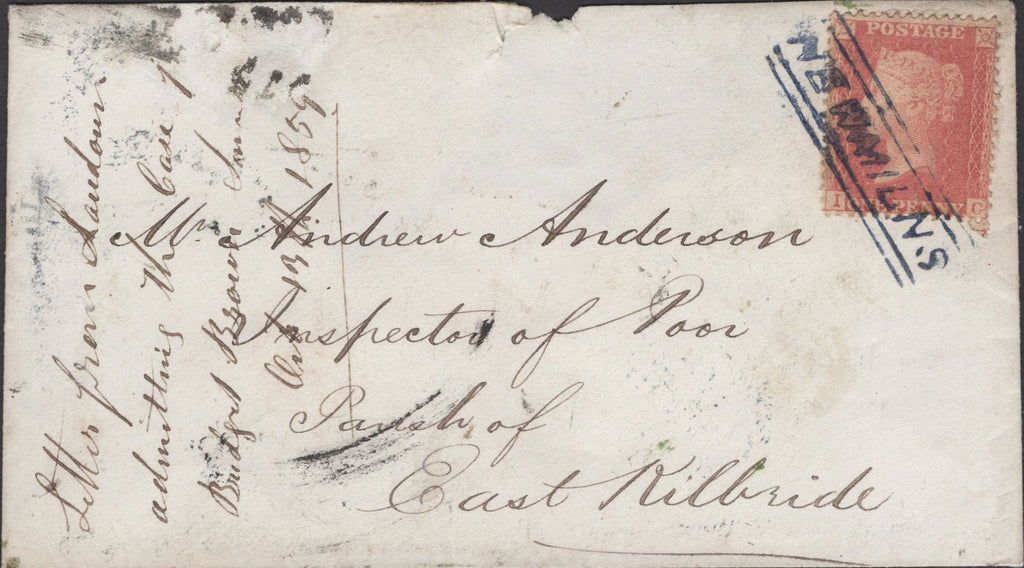 Mr Andrew Anderson
Inspector of Poor
Parish of
East Kilbride
Letter from Loudoun
admitting the Case of
Bridget Brown
13th 1859
POSTAGE
I PENNY C
NEWMILNS